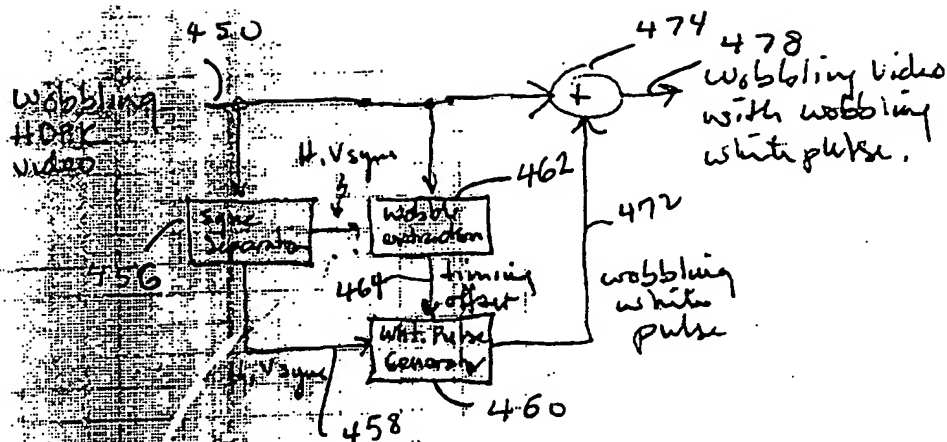 450
474
478
Wobbling
HDPK
video
wobbling video
with wobbling
white pulse.
+
H, Vsync
462
Sync
Separator
Wobble
extraction
472
456
464
timing
offset
wobbling
white
pulse
Wht. Pulse
Generator
H, Vsync
458
460